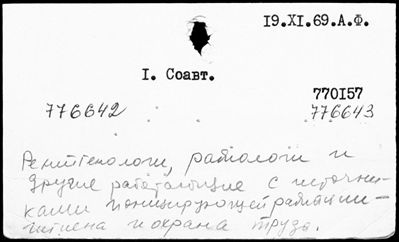 19.XI.69.А.Ф.
I. Соавт.
770157
776642 776643
Рентгенологи, радиологи и
другие работающие с источни-
ками ионизирующей радиации -
гигиена и охрана труда.